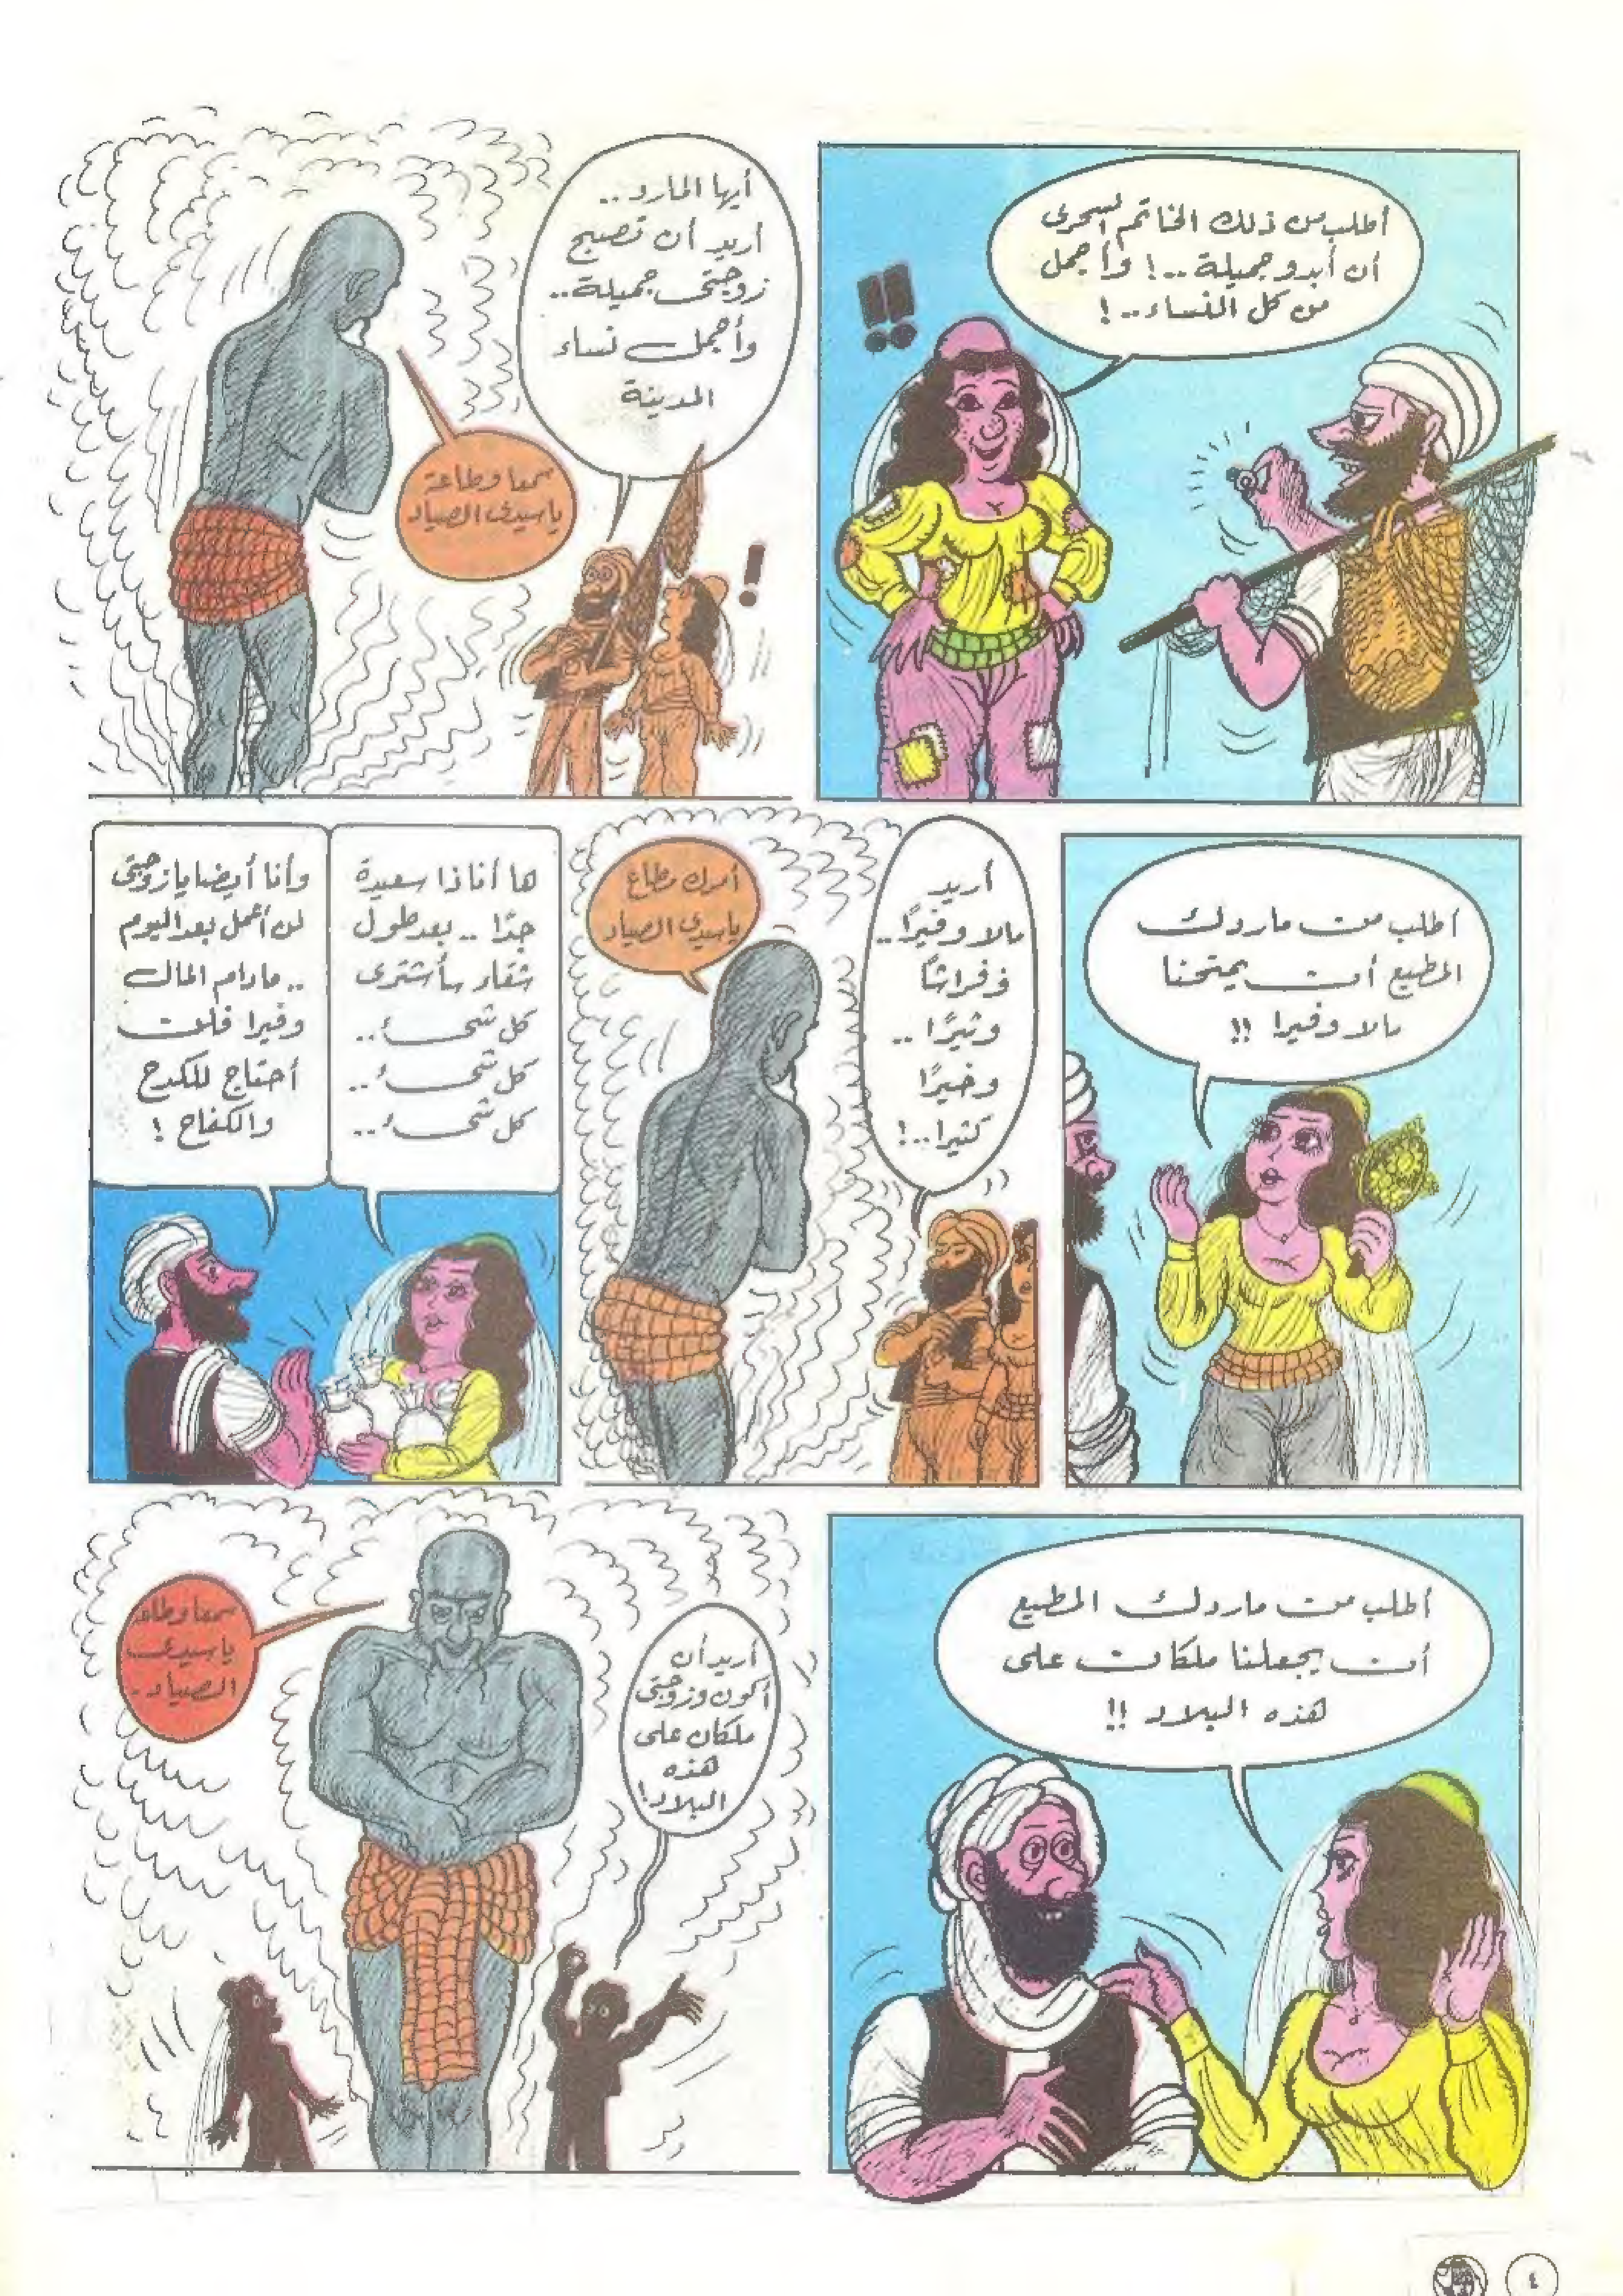 أطلب من ذلك الخاتم السحرى
أن أبدو جميلة ..! وأجمل
من كل النساء ..!
!!
أيها المارد ..
أريد أن تصبح
زوجتى جميلة ..
وأجمل نساء
المدينة
سمعا وطاعة
ياسيدى الصياد
!
أطلب من ماردك
المطيع أن يمنحنا
مالا وفيرا !!
أريد
مالا وفيرًا ..
وفراشًا
وثيرًا ..
وخيرًا
كثيرا ..!
أمرك مطاع
ياسيدى الصياد
ها أناذا سعيدة
جدًا .. بعد طول
شقاء سأشترى
كل شىء ..
كل شىء ..
كل شىء ..
وأنا أيضا يازوجتى
لن أعمل بعد اليوم
.. مادام المال
وفيرا فلن
أحتاج للكدح
والكفاح !
أطلب من ماردك المطيع
أن يجعلنا ملكان على
هذه البلاد !!
أريد أن
أكون وزوجتى
ملكان على
هذه
البلاد!
سمعا وطاعة
ياسيدى
الصياد .
٤